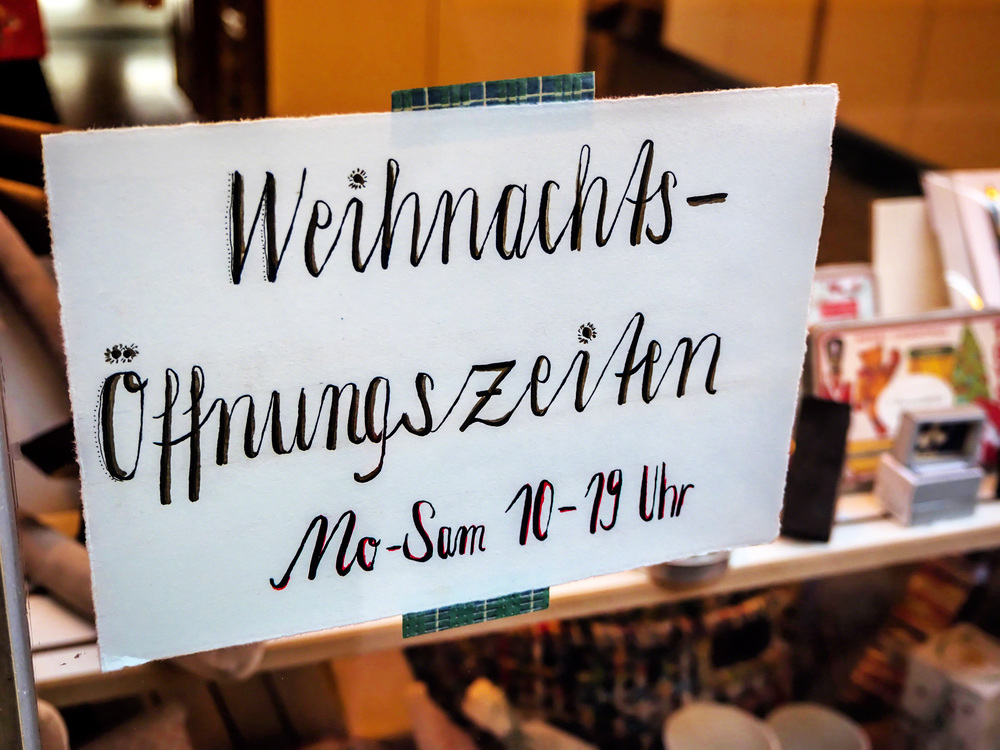 Weihnachts-
Öffnungszeiten
Mo-Sam 10-19 Uhr